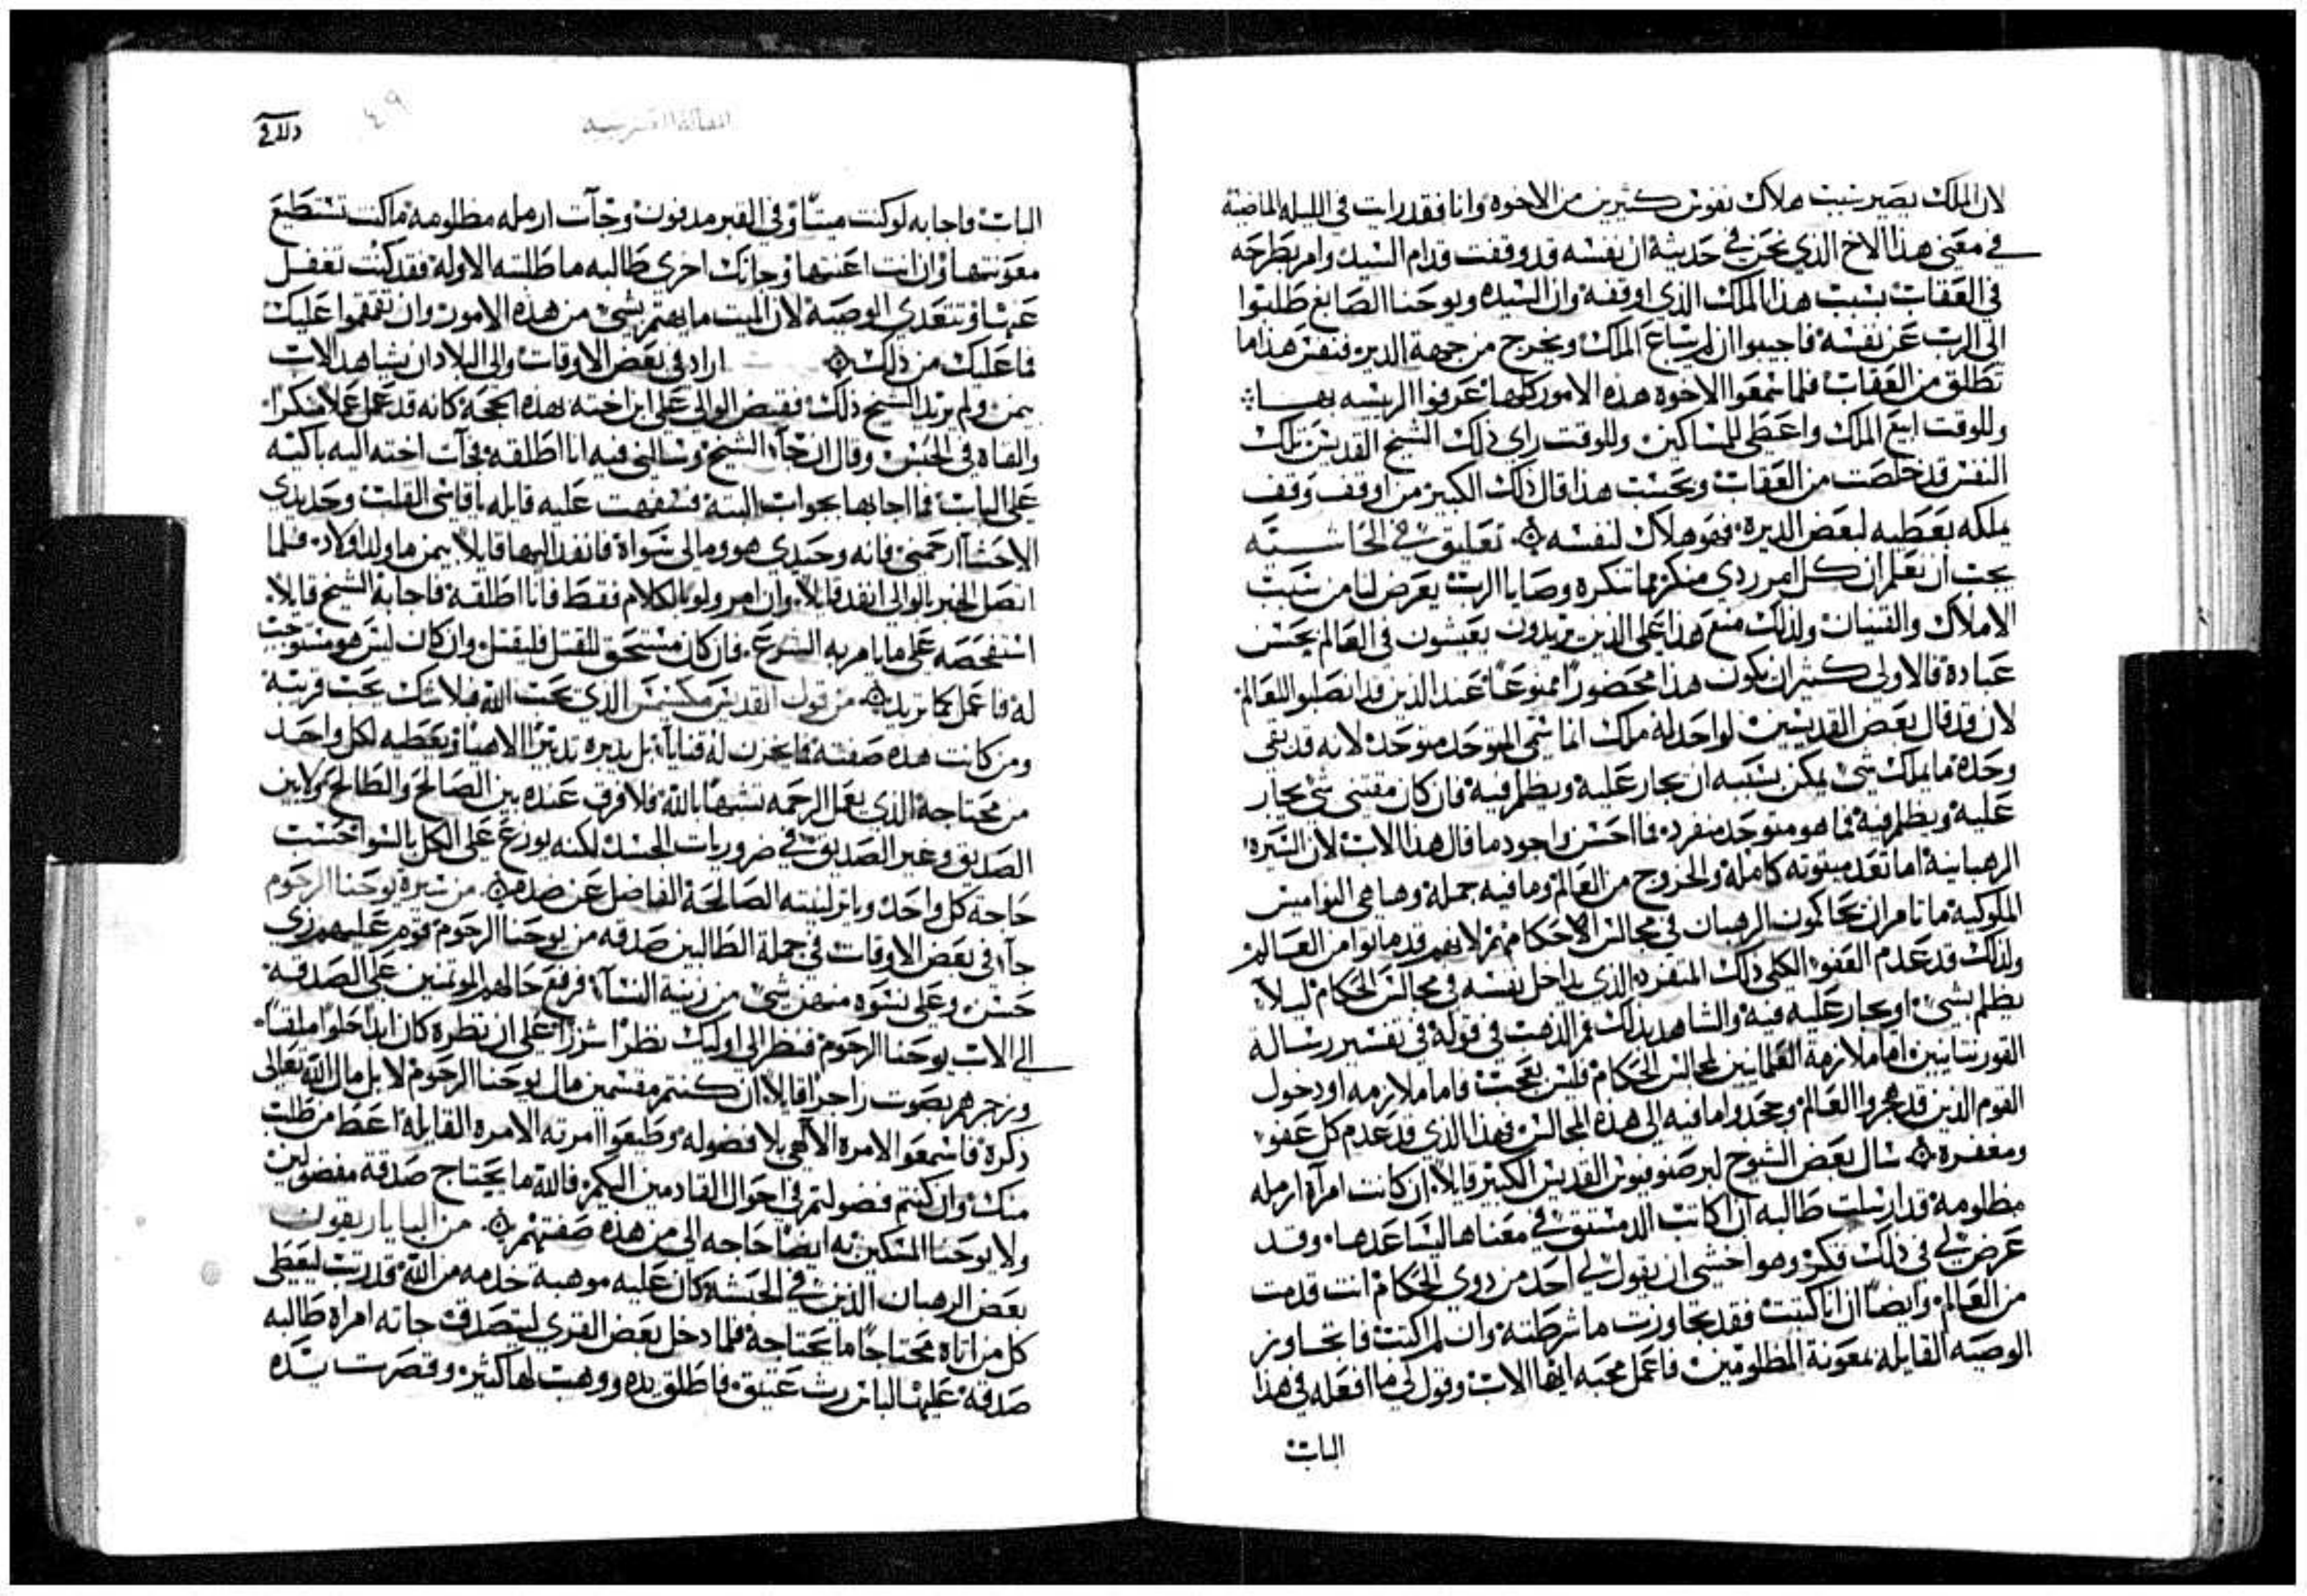 لان الملك يصير سبب هلاك نفوس كثيرين من الاخوه وانا فقد رايت في الليله الماضية
في معنى هذا الاخ الذي نحن في حديثة ان نفسه قد وقفت قدام السيد وامر بطرحه
في العقاب بسبب هذا الملك الذي اوقفه وان السيده ويوحنا الصابغ طلبوا
الى الرب عن نفسه فاجيبوا ان لم يتباع الملك ويخرج من جهة الدير فنفس هذا ما
تطلق من العقاب فلما سمعوا الاخوه هذه الامور كلها عرفوا الريسه بها
وللوقت ابيع الملك واعطي للمساكين وللوقت راي ذلك الشيخ القديس تلك
النفس قد خلصت من العقاب وبحسب هذا قال ذلك الكبير من اوقف وقف
ملكه يعطيه لبعض الديره فهو هلاك لنفسه تعليق في الحاشيته
يجب ان نعلم ان كل امر ردي منكر مما تنكره وصايا الرب يعرض لنا من سبب
الاملاك والقنيان ولذلك منع هذا على الذين يريدون يعيشون في العالم بحسن
عبادة فالاولى كثير ان يكون هذا محضورا ممنوعا عند الذين قد انصلبوا للعالم
لان قد قال بعض القديسين لواحد له ملك انما سمي المتوحد متوحد لانه قد بقي
وحده ما يملك شي يمكن بسببه ان يجار عليه ويظلم فيه فان كان مقتني شي يجار
عليه ويظلم فيه فما هو متوحد منفرد فما احسن واجود ما قال هذا الاب لان السيرة
الرهبانية اما تعد ميتوته كامله والخروج من العالم وما فيه جملة وها هي النواميس
الملوكيه ما تامر ان يحاكمون الرهبان في مجالس الاحكام لانهم قد ماتوا من العالم
ولذلك قد عدم العفو الكلي ذلك المتفرد الذي يداخل نفسه في مجالس الحكام ليلا
يظلم بشي او يجار عليه فيه والشاهد بذلك فم الذهب في قوله في تفسير رسالة
القورنتانيين اما ملازمة العلمانيين لمجالس الحكام فليس بعجب فاما ملازمه او دخول
القوم الذين قد هجروا العالم وجحدوا ما فيه الى هذه المجالس فهذا الذي قد عدم كل عفو
ومغفرة سال بعض الشيوخ لبرصنوفيوس القديس الكبير قايلا ان كانت امرآة ارمله
مظلومة قد ارسلت طالبه ان اكاتب الدمستق في معناها ليساعدها وقد
عرض لي في ذلك فكر وهو اخشي ان يقول لي احد من ذوي الحكام انت قد مت
من العالم وايضا ان انا كتبت فقد تجاوزت ما شرطته وان لم اكتب فاتجاوز
الوصيه القايله بمعونة المظلومين فاعمل محبه ايها الاب وقول لي ما افعله في هذا
الباب
الباب فاجابه لو كنت ميتا وفي القبر مدفون وجآت ارمله مظلومة ما كنت تستطيع
معونتها وان انت اعنتها وجاتك اخرى طالبه ما طلبته الاوله فقد كنت تغفل
عنها وتتعدي الوصية لان الميت ما يهتم بشي من هذه الامور وان تقمقموا عليك
فما عليك من ذلك اراد في بعض الاوقات والي البلاد ان يشاهد الاب
بيمن ولم يريد الشيخ ذلك فقبض الوالي على ابن اخته بهذه الحجة كانه قد عمل عملا منكرا
والقاه في الحبس وقال ان جآ الشيخ وسالني فيه انا اطلقه فجآت اخته اليه باكيه
على الباب فما اجابها بجواب البتة فسفهت عليه قايله يا قاسي القلب وحديدي
الاحشآ ارحمني فانه وحيدي هو وما لي سواه فانفد اليها قايلا بيمن ما ولد اولاد فلما
اتصل الخبر بالوالي انفد قايلا وان امر ولو بالكلام فقط فانا اطلقه فاجابه الشيخ قايلا
استفحصه على ما يامر به الشرع فان كان مستحق للقتل فليقتل وان كان ليس هو مستوجب
له فاعمل كما تريد من قول القديس مكسيمس الذي يحب الله فلا شك يحب قريبه
ومن كانت هذه صفته فما يخزن له قنايا بل يدبره تدبيرا الاهيا ويعطيه لكل واحد
من محتاجه الذي يعمل الرحمه تشبها بالله فلا فرق عنده بين الصالح والطالح ولا بين
الصديق وغير الصديق في ضروريات الجسد لكنه يوزع على الكل بالسوا حسب
حاجة كل واحد وياثر لنيته الصالحة الفاضل عن ضده من سيرة يوحنا الرحوم
جآ في بعض الاوقات في جملة الطالبين صدقه من يوحنا الرحوم قوم عليهم زي
حسن وعلى نسوه منهن شي من زينة النسآ فرفع حالهم الموتمنين على الصدقة
الي الاب يوحنا الرحوم فنظر الى اوليك نظرا شزرا على ان نظره كان ابدا حلوا
وزجرهم بصوت زاجر قايلا ان كنتم مقسمين مال يوحنا الرحوم لا بل مال الله تعالى
ذكره فاسمعوا الامره الالهي بلا فضوله وطيعوا امرته الامره القايلة اعط من طلب
منك وان كنتم فضولتم في احوال القادمين اليكم فالله ما يحتاج صدقة مفضولين
ولا يوحنا المسكين به ايضا حاجه الى من هذه صفتهم من البابا ريقون
بعض الرهبان الذين في الحبشه كان عليه موهبة خدمه من الله قد رتب ليعطي
كل من اتاه محتاجا ما يحتاجة فلما دخل بعض القري ليتصدق جاته امراة طالبه
صدقة عليها لباس رث عتيق فاطلق يده ووهب لها كثير وقصرت يده